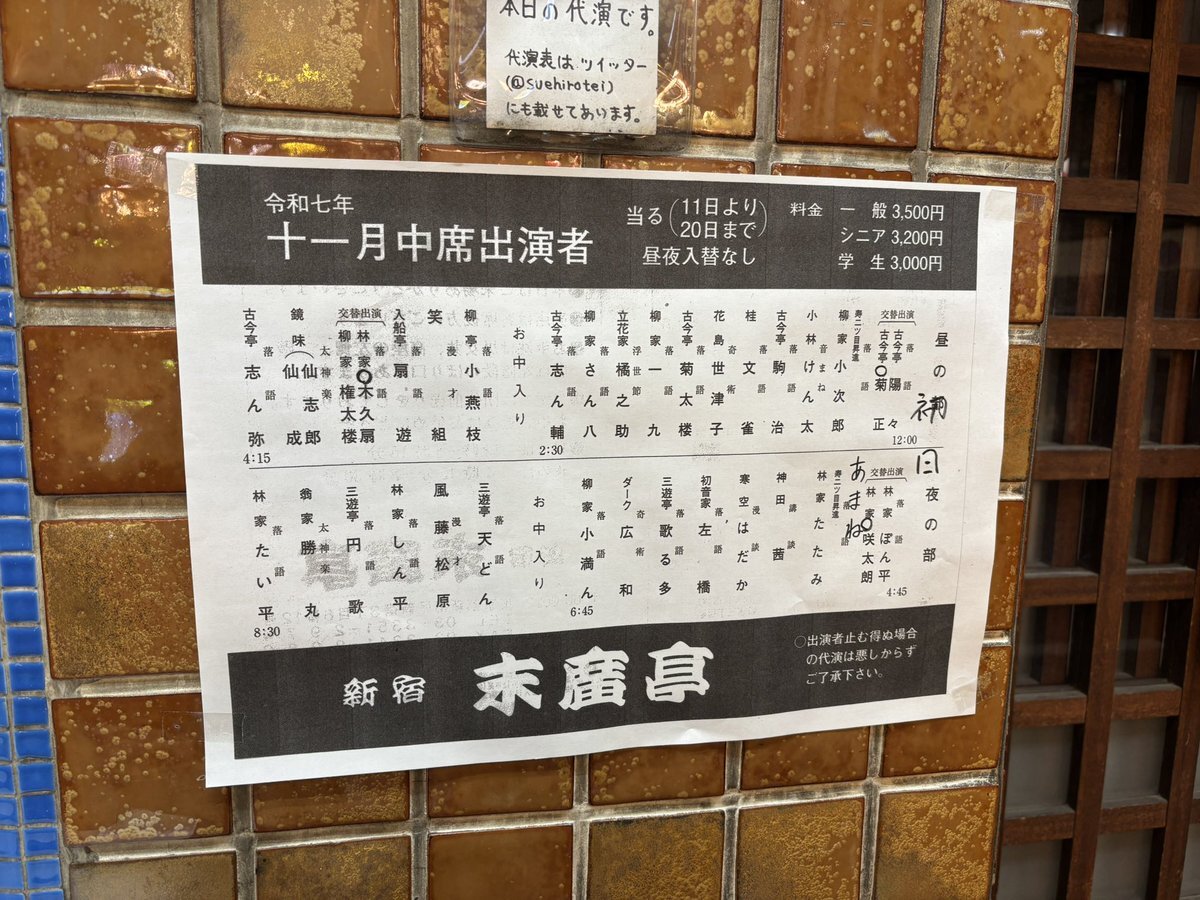 本日の代演です。
代演表はツイッター
(@suehirotei)
にも載せてあります。
令和七年
十一月中席出演者
当る(11日より
20日まで)
昼夜入替なし
料金 一般 3,500円
シニア 3,200円
学生 3,000円
昼の部
交替出演
落語 古今亭 陽々
落語 古今亭 菊正
12:00
寿二ツ目昇進
落語 柳家小次郎
音まね 小林けん太
落語 古今亭駒治
落語 桂文雀
奇術 花島世津子
落語 古今亭菊太楼
落語 柳家一九
浮世節 立花家橘之助
落語 柳家さん八
落語 古今亭志ん輔
2:30
お中入り
落語 柳亭小燕枝
漫才 笑組
落語 入船亭扇遊
交替出演
落語 林家木久扇
落語 柳家権太楼
太神楽 鏡味(仙志郎
仙成
落語 古今亭志ん弥
4:15
夜の部
交替出演
落語 林家ぽん平
落語 林家咲太朗
4:45
あまね
寿二ツ目昇進
落語 林家たたみ
講談 神田茜
漫談 寒空はだか
落語 初音家左橋
落語 三遊亭歌る多
奇術 ダーク広和
落語 柳家小満ん
6:45
お中入り
落語 三遊亭天どん
漫才 風藤松原
落語 林家しん平
落語 三遊亭円歌
太神楽 翁家勝丸
落語 林家たい平
8:30
新宿 末廣亭
○出演者止む得ぬ場合
の代演は悪しからず
ご了承下さい。